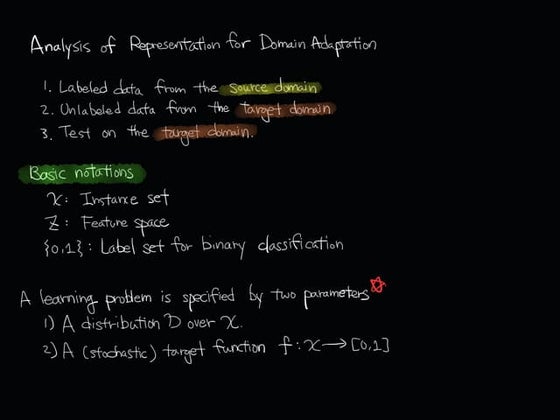 Analysis of Representation for Domain Adaptation
1. Labeled data from the source domain
2. Unlabeled data from the target domain
3. Test on the target domain.
Basic notations
X: Instance set
Z: Feature space
{0,1}: Label set for binary classification
A learning problem is specified by two parameters
1) A distribution D over X.
2) A (stochastic) target function f: X → [0,1]